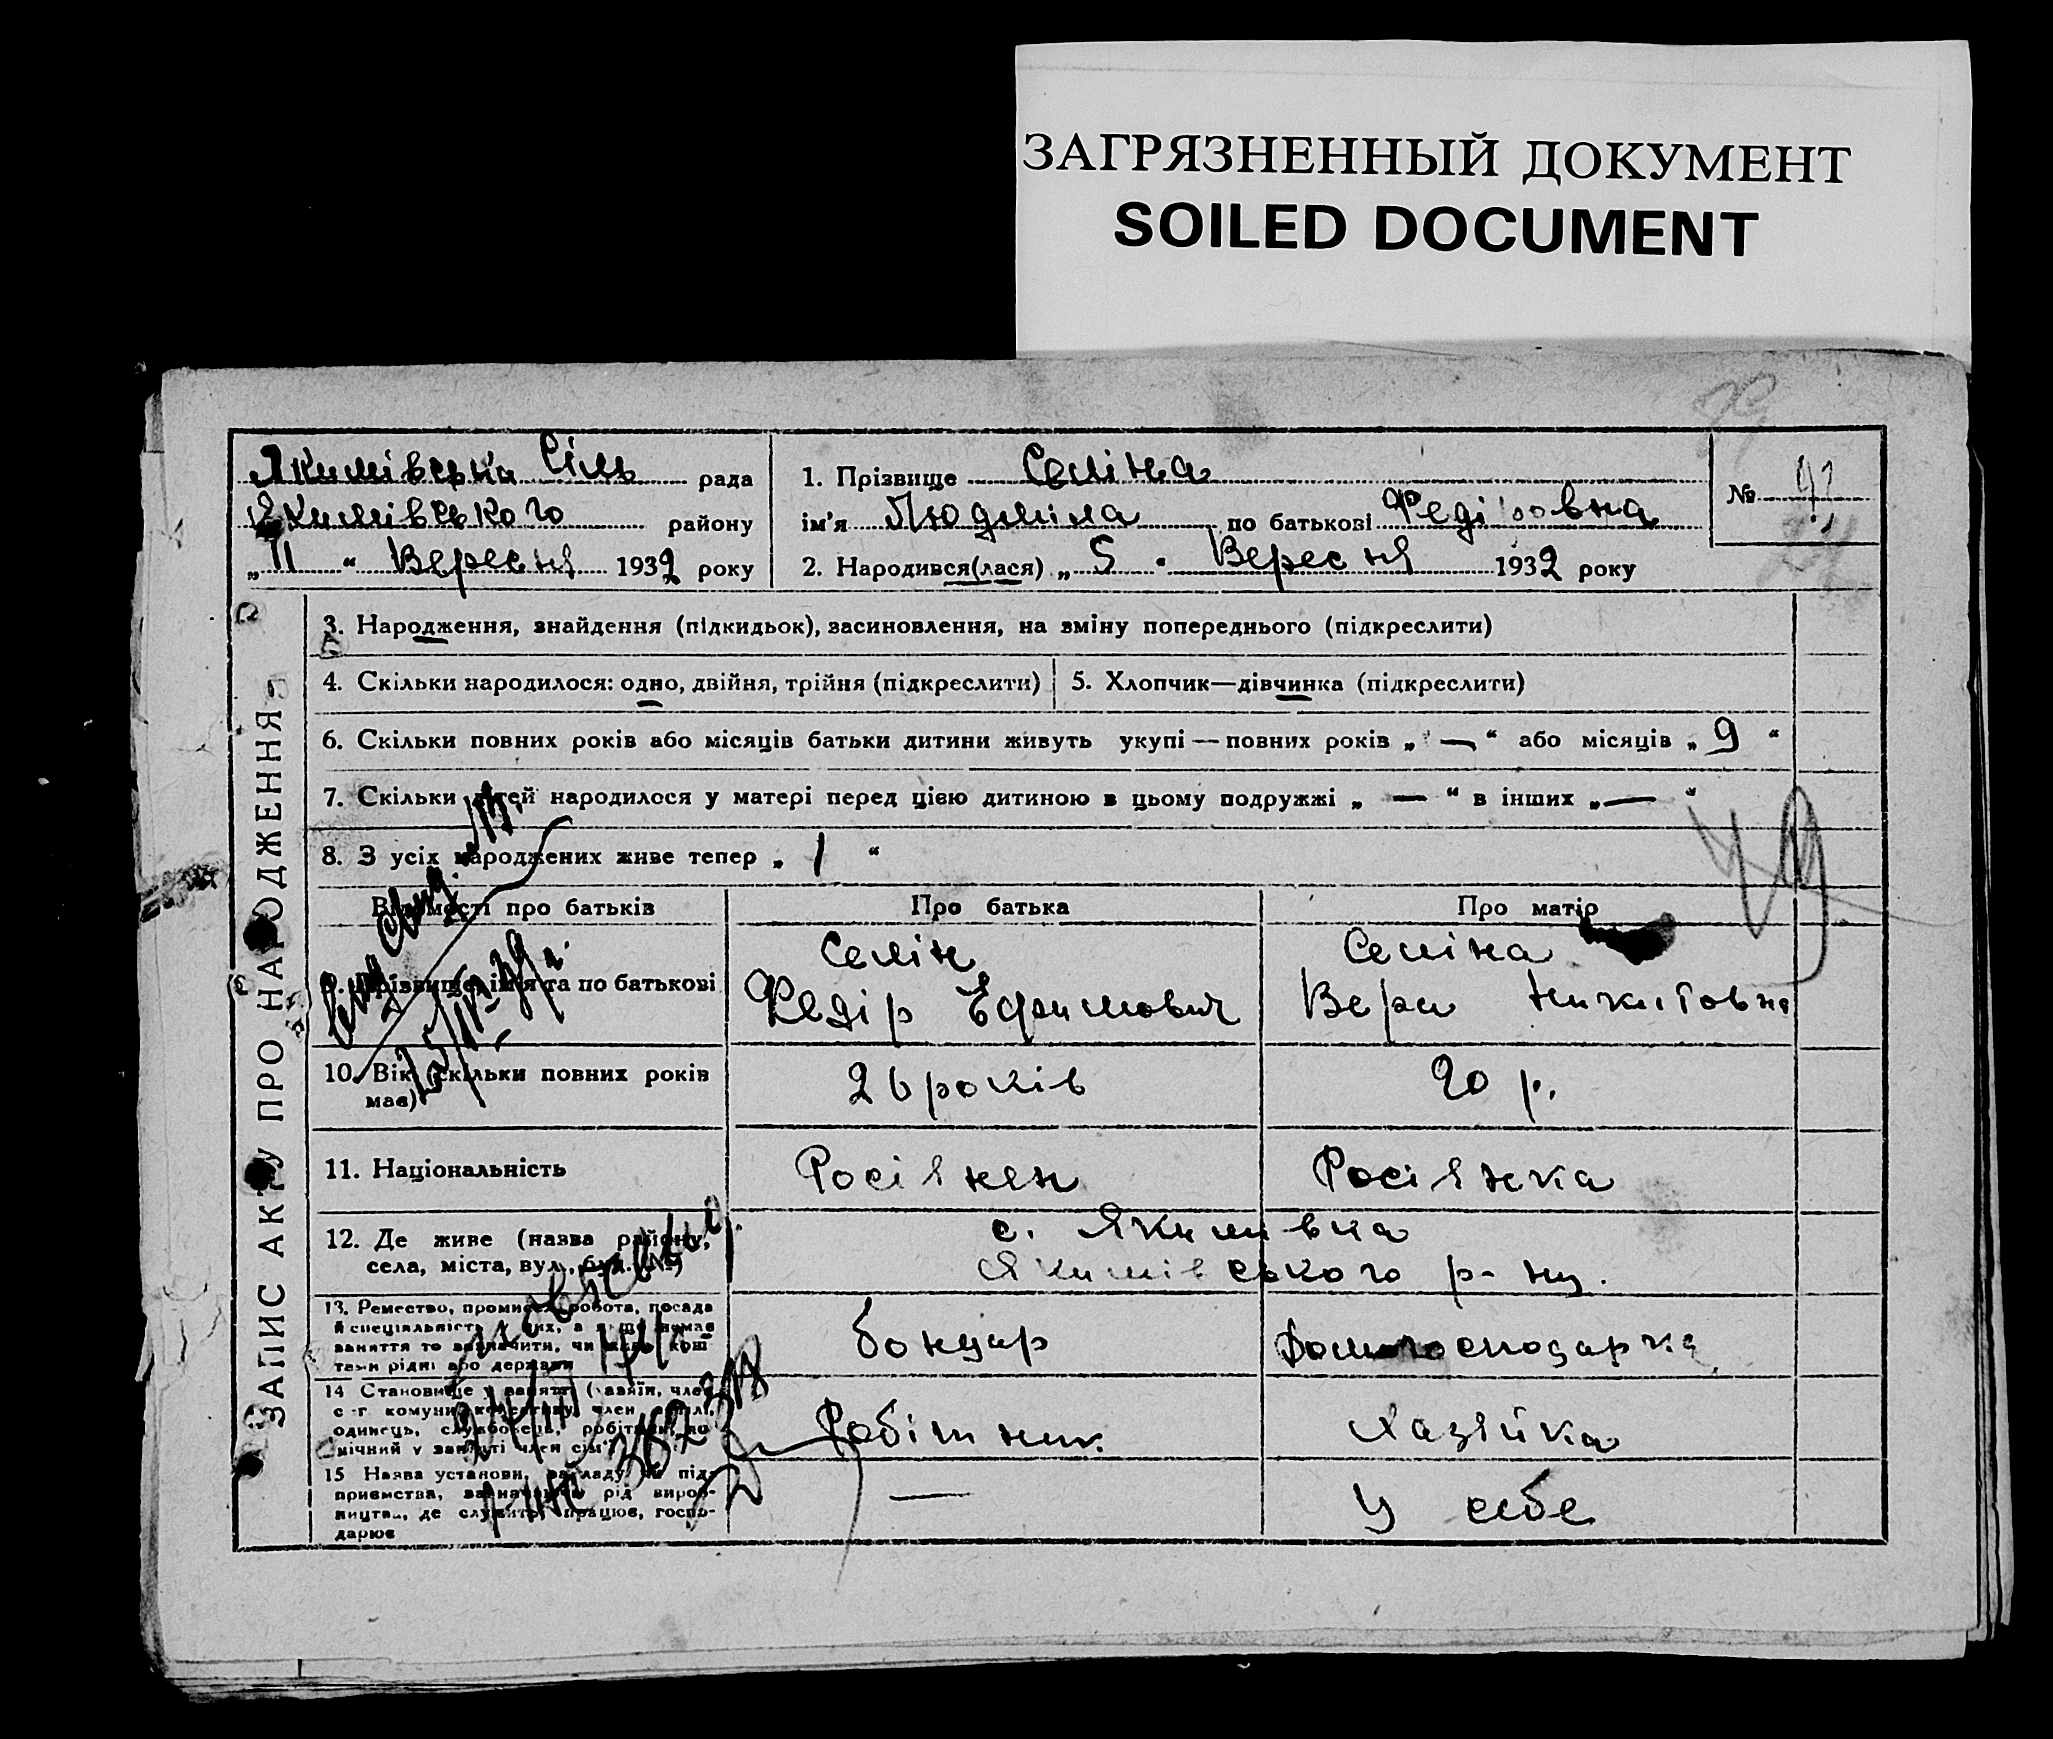 ЗАГРЯЗНЕННЫЙ ДОКУМЕНТ
SOILED DOCUMENT
Якимівська Сіль рада
Якимівського району
„ 11 “ Вересня 1932 року
1. Прізвище Селіна
ім'я Людміла по батькові Федіровна
2. Народився(лася) „ 5 “ Вересня 1932 року
№
ЗАПИС АКТУ ПРО НАРОДЖЕННЯ
3. Народження, знайдення (підкидьок), засиновлення, на зміну попереднього (підкреслити)
4. Скільки народилося: одно, двійня, трійня (підкреслити)
5. Хлопчик—дівчинка (підкреслити)
6. Скільки повних років або місяців батьки дитини живуть укупі — повних років „ — “ або місяців „ 9 “
7. Скільки дітей народилося у матері перед цією дитиною в цьому подружжі „ — “ в інших „ — “
8. З усіх народжених живе тепер „ 1 “
49
Відомості про батьків
Про батька
Про матір
9. Прізвище, ім'я та по батькові
Селін
Федір Ефимович
Селіна
Вера Никитовна
10. Вік (скільки повних років
має)
26 років
20 р.
11. Національність
Росіянен
Росіянка
12. Де живе (назва району,
села, міста, вул., буд. №)
с. Якимівка
Якимівського р-ну.
13. Ремество, промисел, робота, посада
й спеціяльність у них, а якщо немає
заняття то зазначити, чи має кошти
рідні або держави
бондар
Домогосподарка
14 Становище у занятті (хазяїн, член
с-г комуни, колективу, член артілі,
одинець, службовець, робітник, по
мічний у занятті член сім'ї)
Робітник
Хазяйка
15 Назва установи, закладу чи під-
приємства, зазначаючи рід вироб-
ництва, де служить, працює, госпо-
дарює
—
У себе